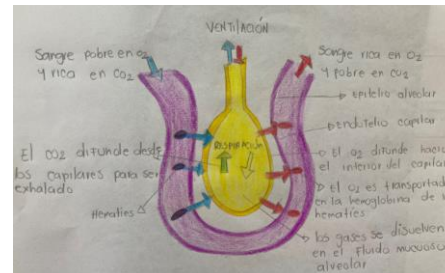 VENTILACIÓN
Sangre pobre en O2
y rica en CO2
Sangre rica en O2
y pobre en CO2
epitelio alveolar
endotelio capilar
El CO2 difunde desde
los capilares para ser
exhalado
RESPIRACIÓN
El O2 difunde hacia
el interior del capilar
El O2 es transportado
en la hemoglobina de
hematíes
Hematíes
los gases se disuelven
en el fluido mucoso
alveolar